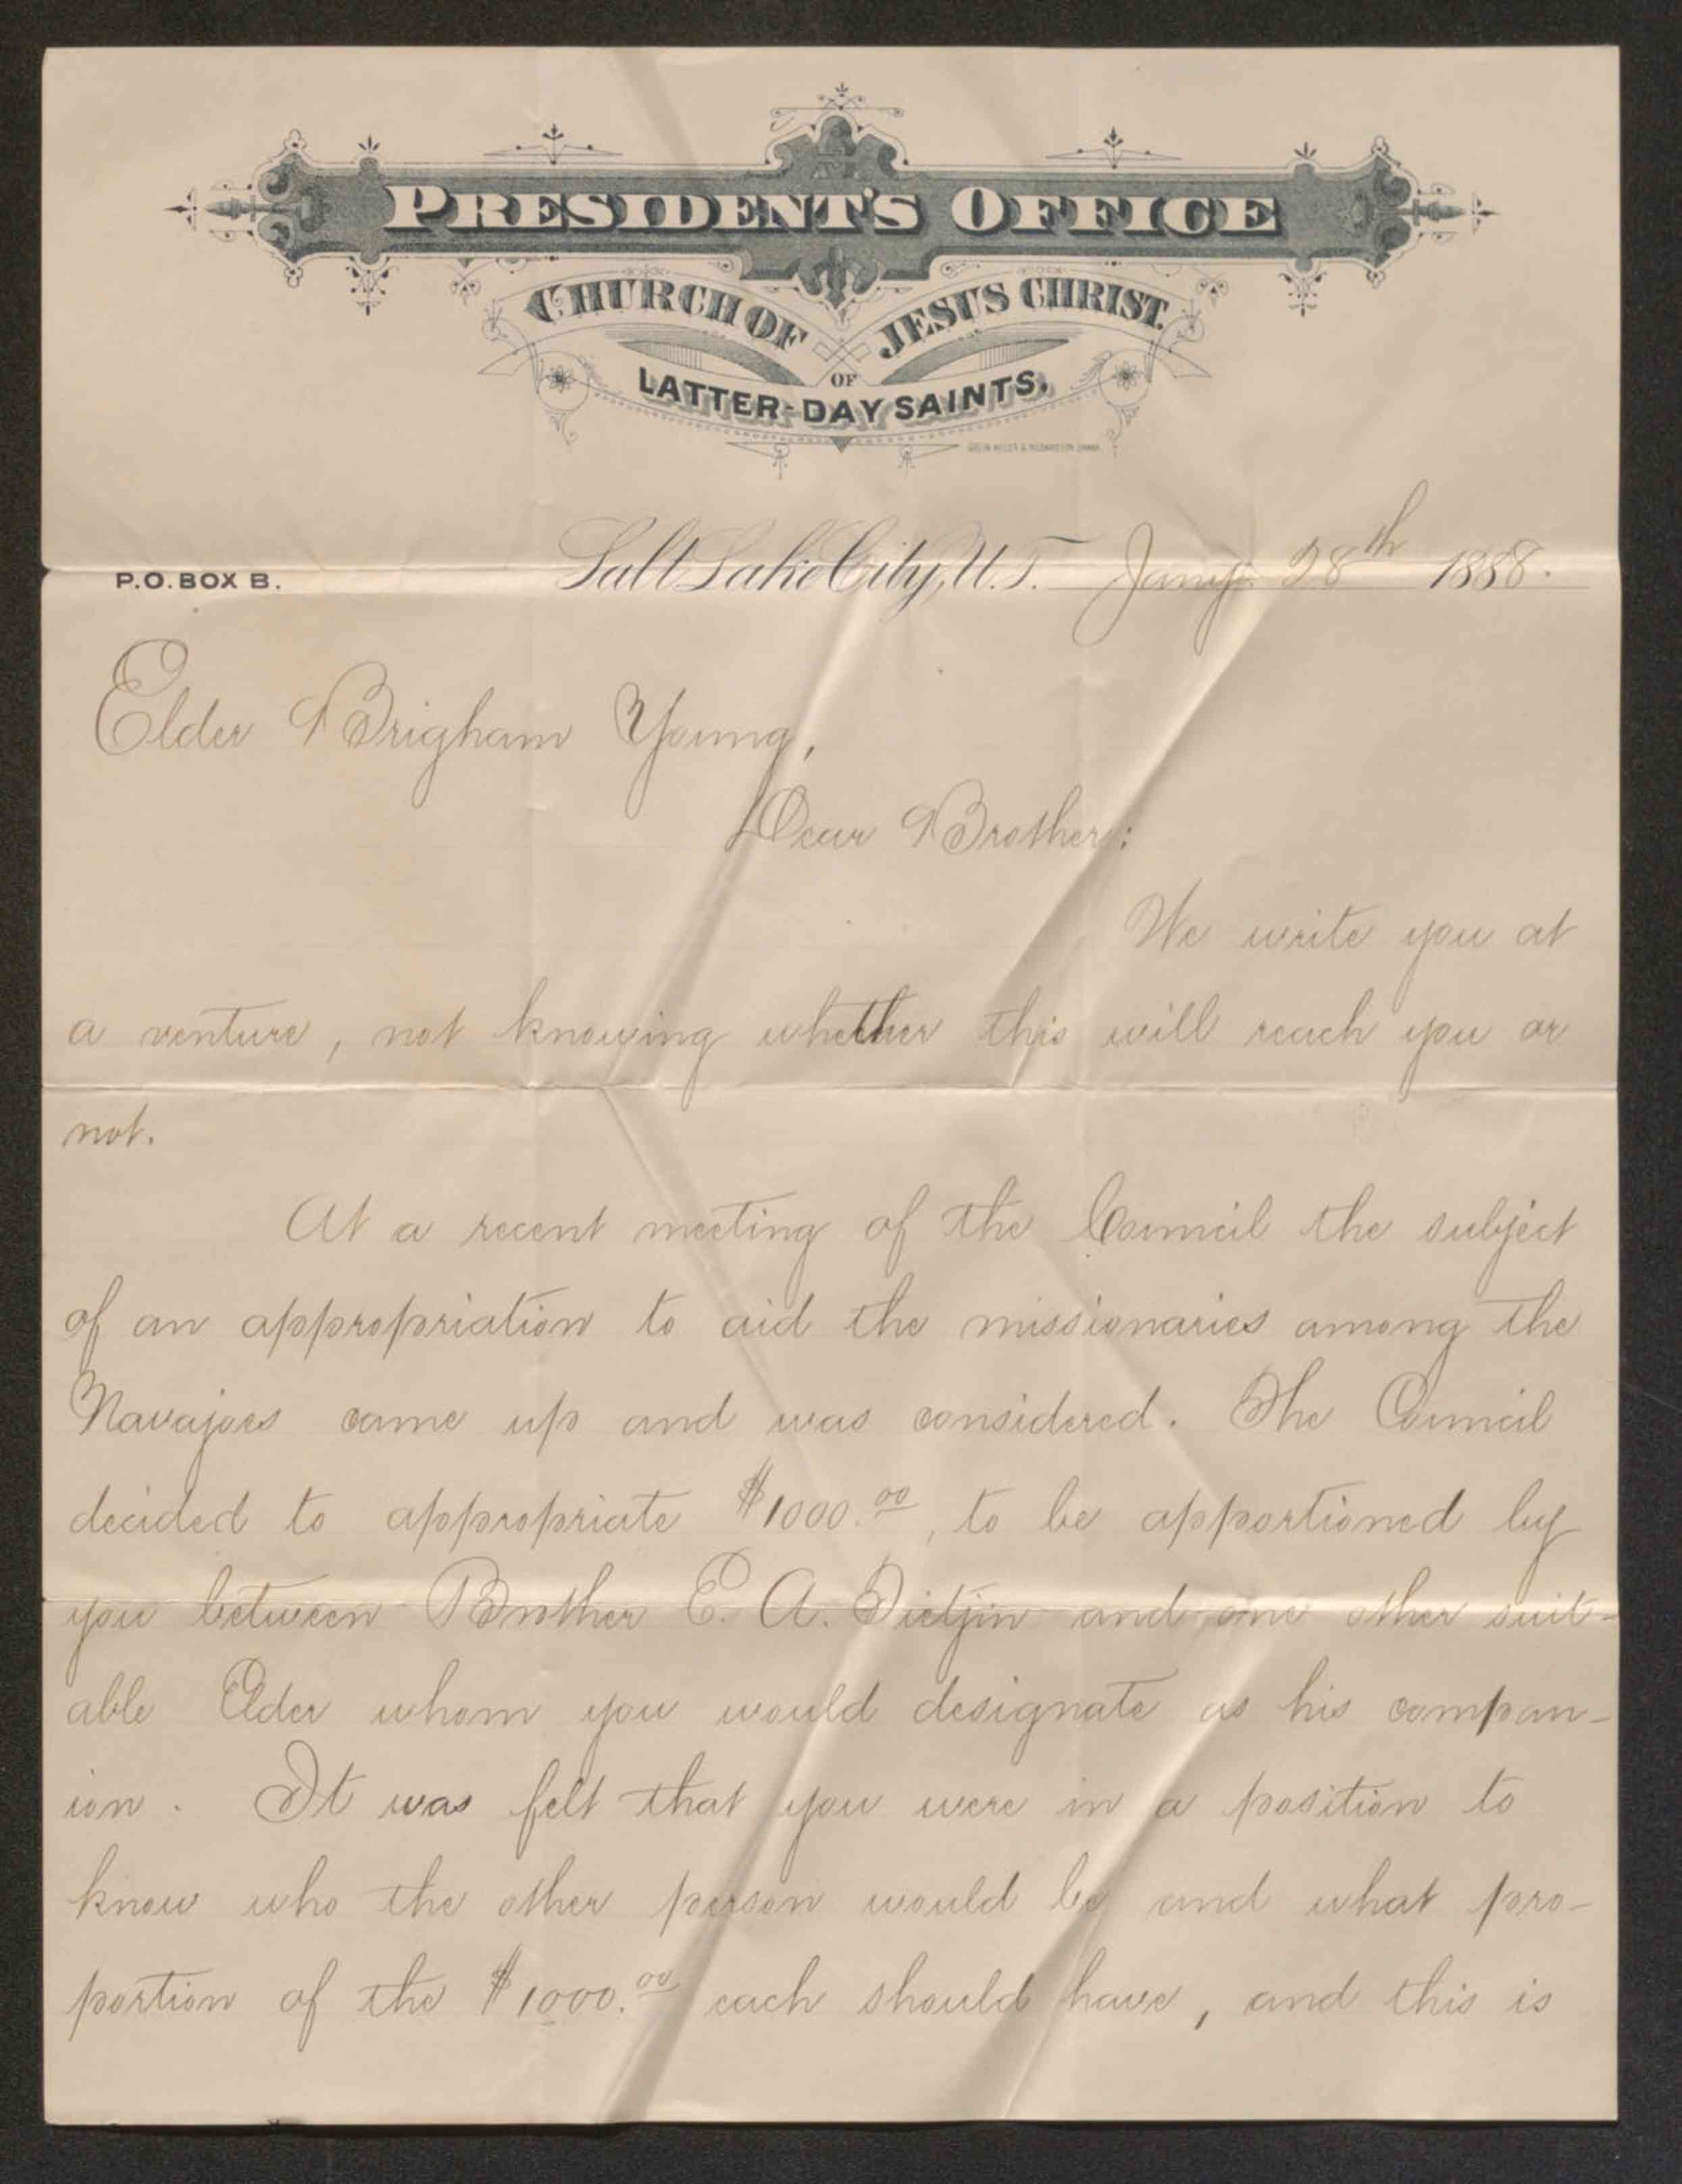 PRESIDENT'S OFFICE
CHURCH OF JESUS CHRIST
OF
LATTER-DAY SAINTS.
P.O. BOX B. Salt Lake City, U.T. Jany. 28th 1888.
Elder Brigham Young,
Dear Brother:
We write you at
a venture, not knowing whether this will reach you or
not.
At a recent meeting of the Council the subject
of an appropriation to aid the missionaries among the
Navajoes came up and was considered. The Council
decided to appropriate $1000.00, to be apportioned by
you between Brother E. A. Dietjin and one other suit-
able Elder whom you would designate as his compan-
ion. It was felt that you were in a position to
know who the other person would be and what pro-
portion of the $1000.00 each should have, and this is